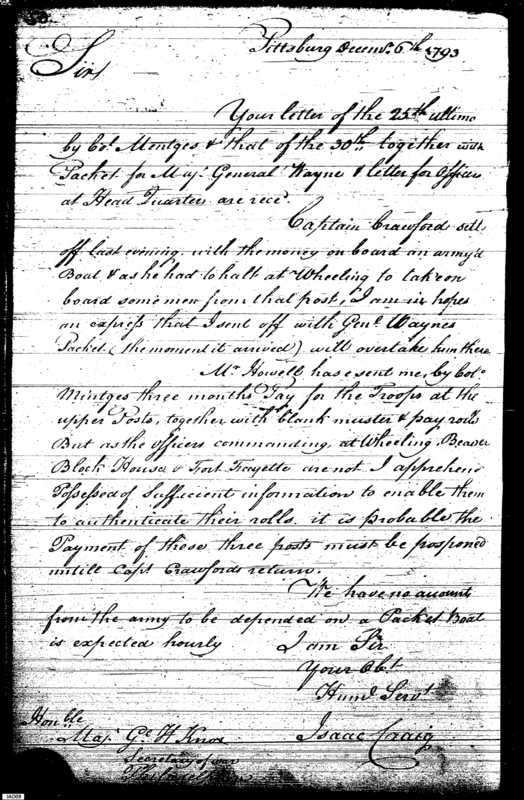 Pittsburg Decemr. 6th 1793
Sir
Your letter of the 25th ultimo
by Col. Mentges & that of the 30th together with
Packet for Maj. General Wayne & letter for Officers
at Head Quarters are recd.
Captain Crawford sett
off last evening, with the money on board an arm'd
Boat & as he had to halt at Wheeling to take on
board some men from that post, I am in hopes
an express that I sent off with Genl. Waynes
Packet (the moment it arrived) will overtake him there
Mr. Howell has sent me, by Colo.
Mintges three months Pay for the Troops at the
upper Posts, together with blank muster & pay rolls
But as the officers commanding, at Wheeling, Beaver
Block House & Fort Fayette are not I apprehend
Possessed of Sufficient information to enable them
to authenticate their rolls. it is probable the
Payment of these three posts must be posponed
untill Capt Crawfords return.
We have no accounts
from the army to be depended on, a Packet Boat
is expected hourly
I am Sir
Your Obt.
Humb. Servt
Isaac Craig
Honble
Maj. Gl. H Knox
Secretary of war
IAC69